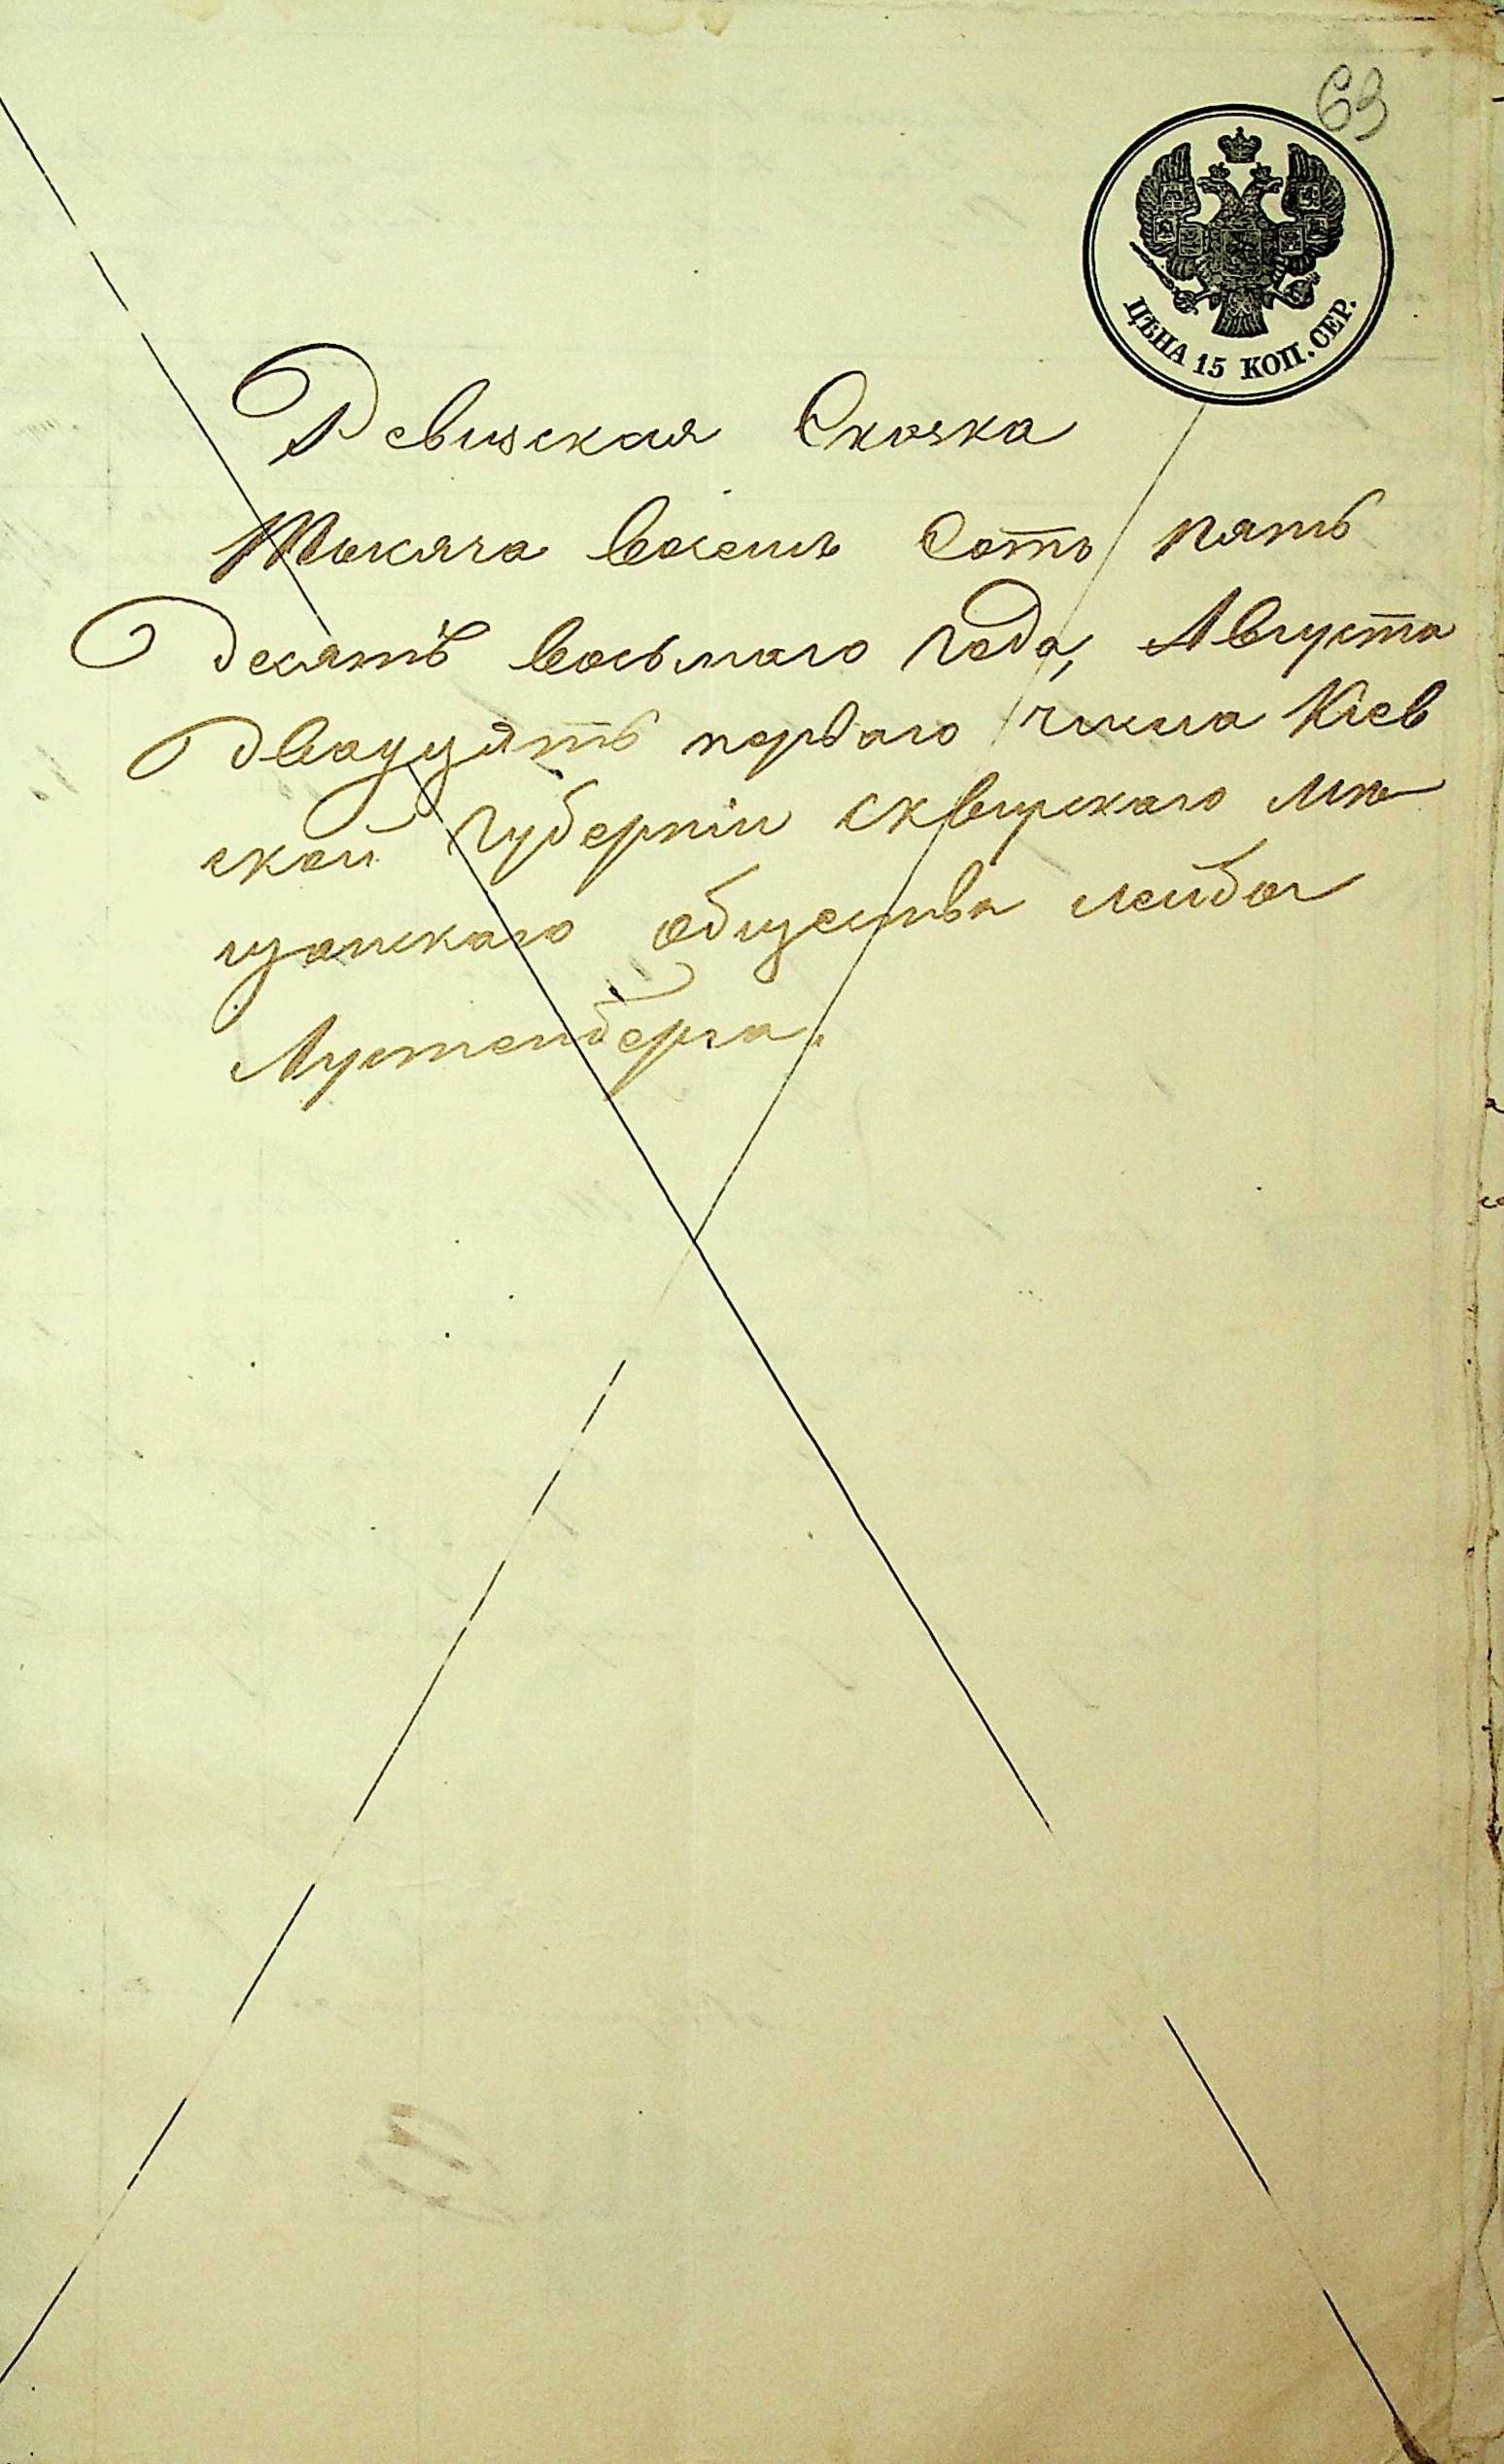 63
ЦѢНА 15 КОП. СЕР.
Ревизская Сказка
Тысяча восемь Сотъ пять
Десятъ восьмаго Года, Августа
Двадцять перваго числа Кіев
ской Губерніи сквирскаго мѣ
щанскаго общества лейбы
Лустенберга.